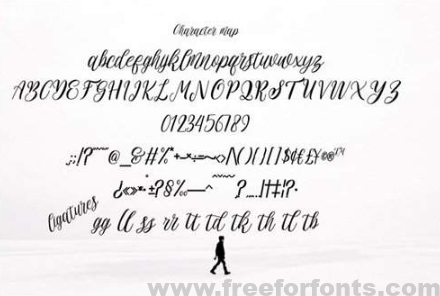 Character map
abcdefghijklmnopqrstuvwxyz
ABCDEFGHIJKLMNOPQRSTUVWXYZ
0123456789
.;:!?¨¯˜@_&#%*+-×÷=¬~<>/\()[]{}$¢€£¥©®™
¿«»•°±?§%‰—^ ? ....|†‡¦?·
ligatures
gg ll ss rr tt td tk th tl tb
www.freeforfonts.com